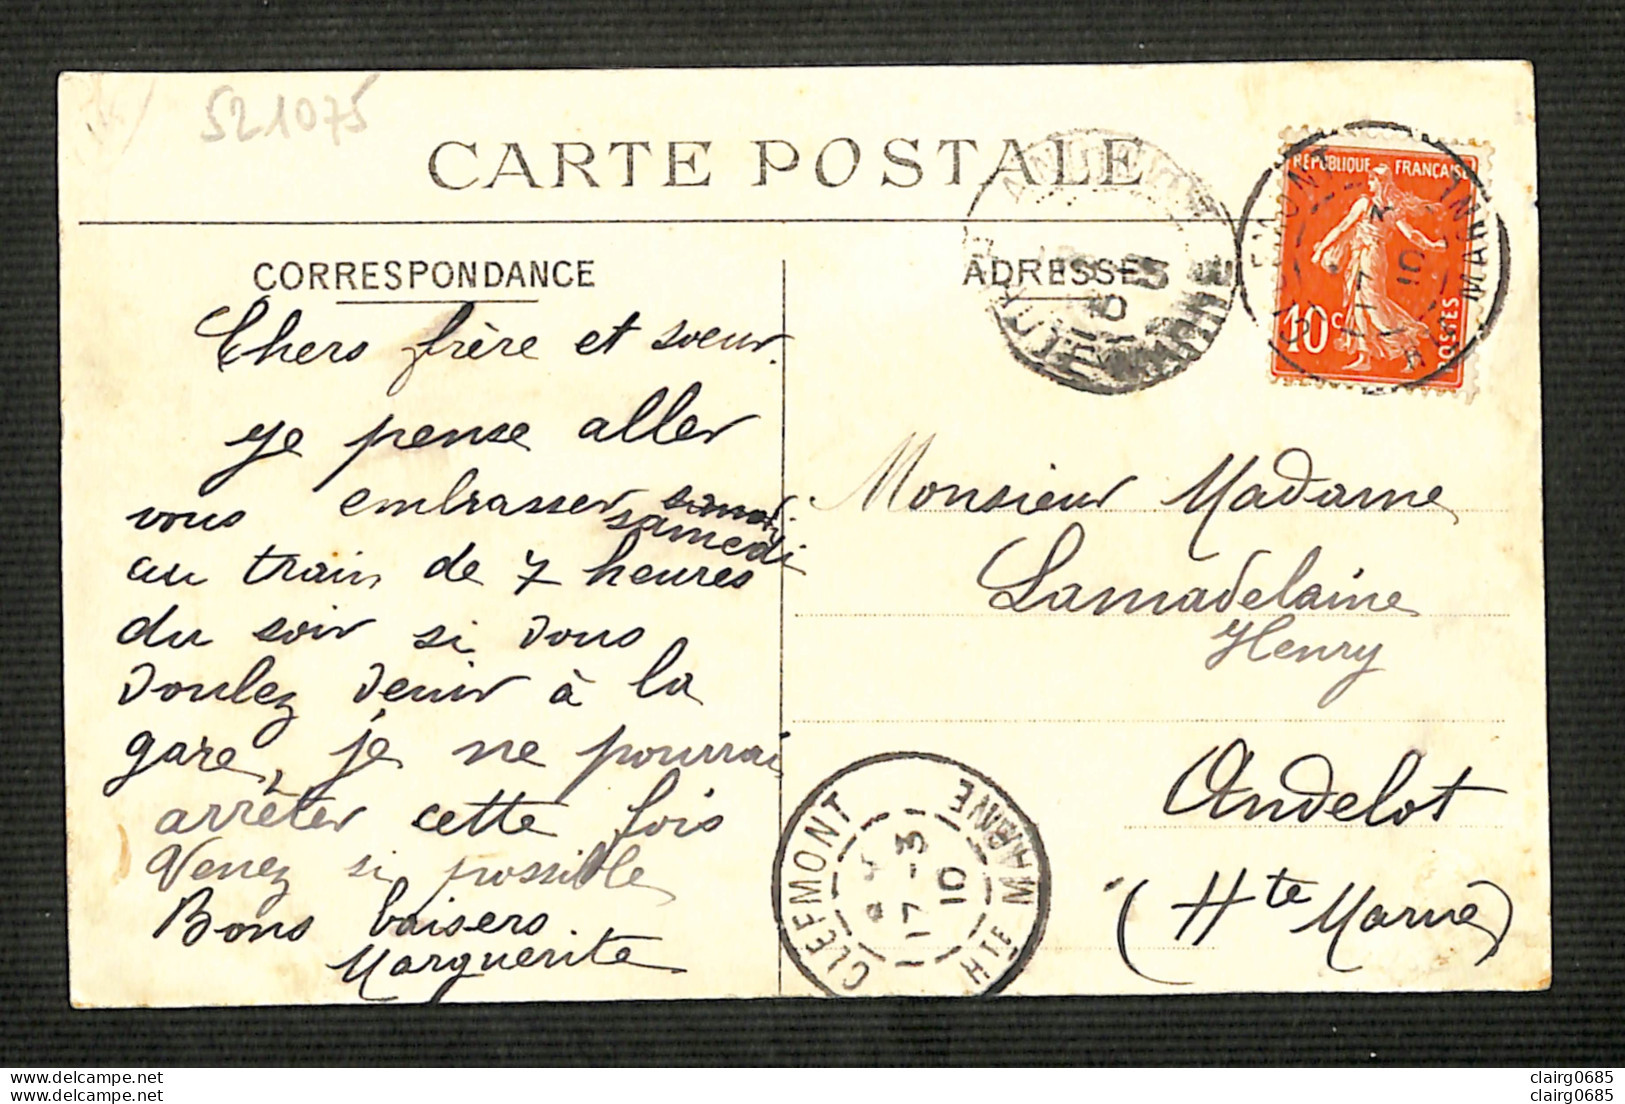 521075
CARTE POSTALE
CORRESPONDANCE
Chers frère et soeur.
je pense aller
vous embrasser samedi
au train de 7 heures
du soir si vous
voulez venir à la
gare, je ne pourrai
arrêter cette fois
Venez si possible
Bons baisers
Marguerite
ADRESSE
RÉPUBLIQUE FRANÇAISE
10c
POSTES
Monsieur Madame
Lamadelaine
Henry
Andelot
(Hte Marne)
CLEFMONT HTE MARNE
17 -3
10
clairg0685
clairg0685
clairg0685
clairg0685